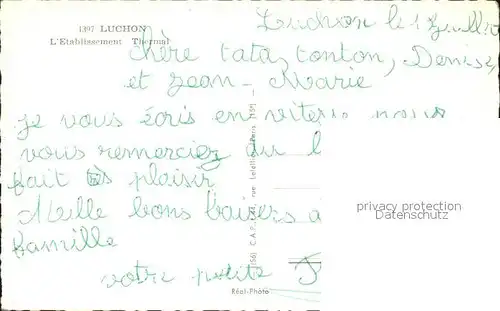 1397 LUCHON
L'Etablissement Thermal
Luchon le 1 Juillet
chère tata, tonton, Denise,
et Jean-Marie
je vous écris en vitesse nous
vous remerciez du
fait très plaisir
Mille bons baisers à
famille
votre petite
privacy protection
Datenschutz
Réal-Photo
(56) C.A.P. rue Paris